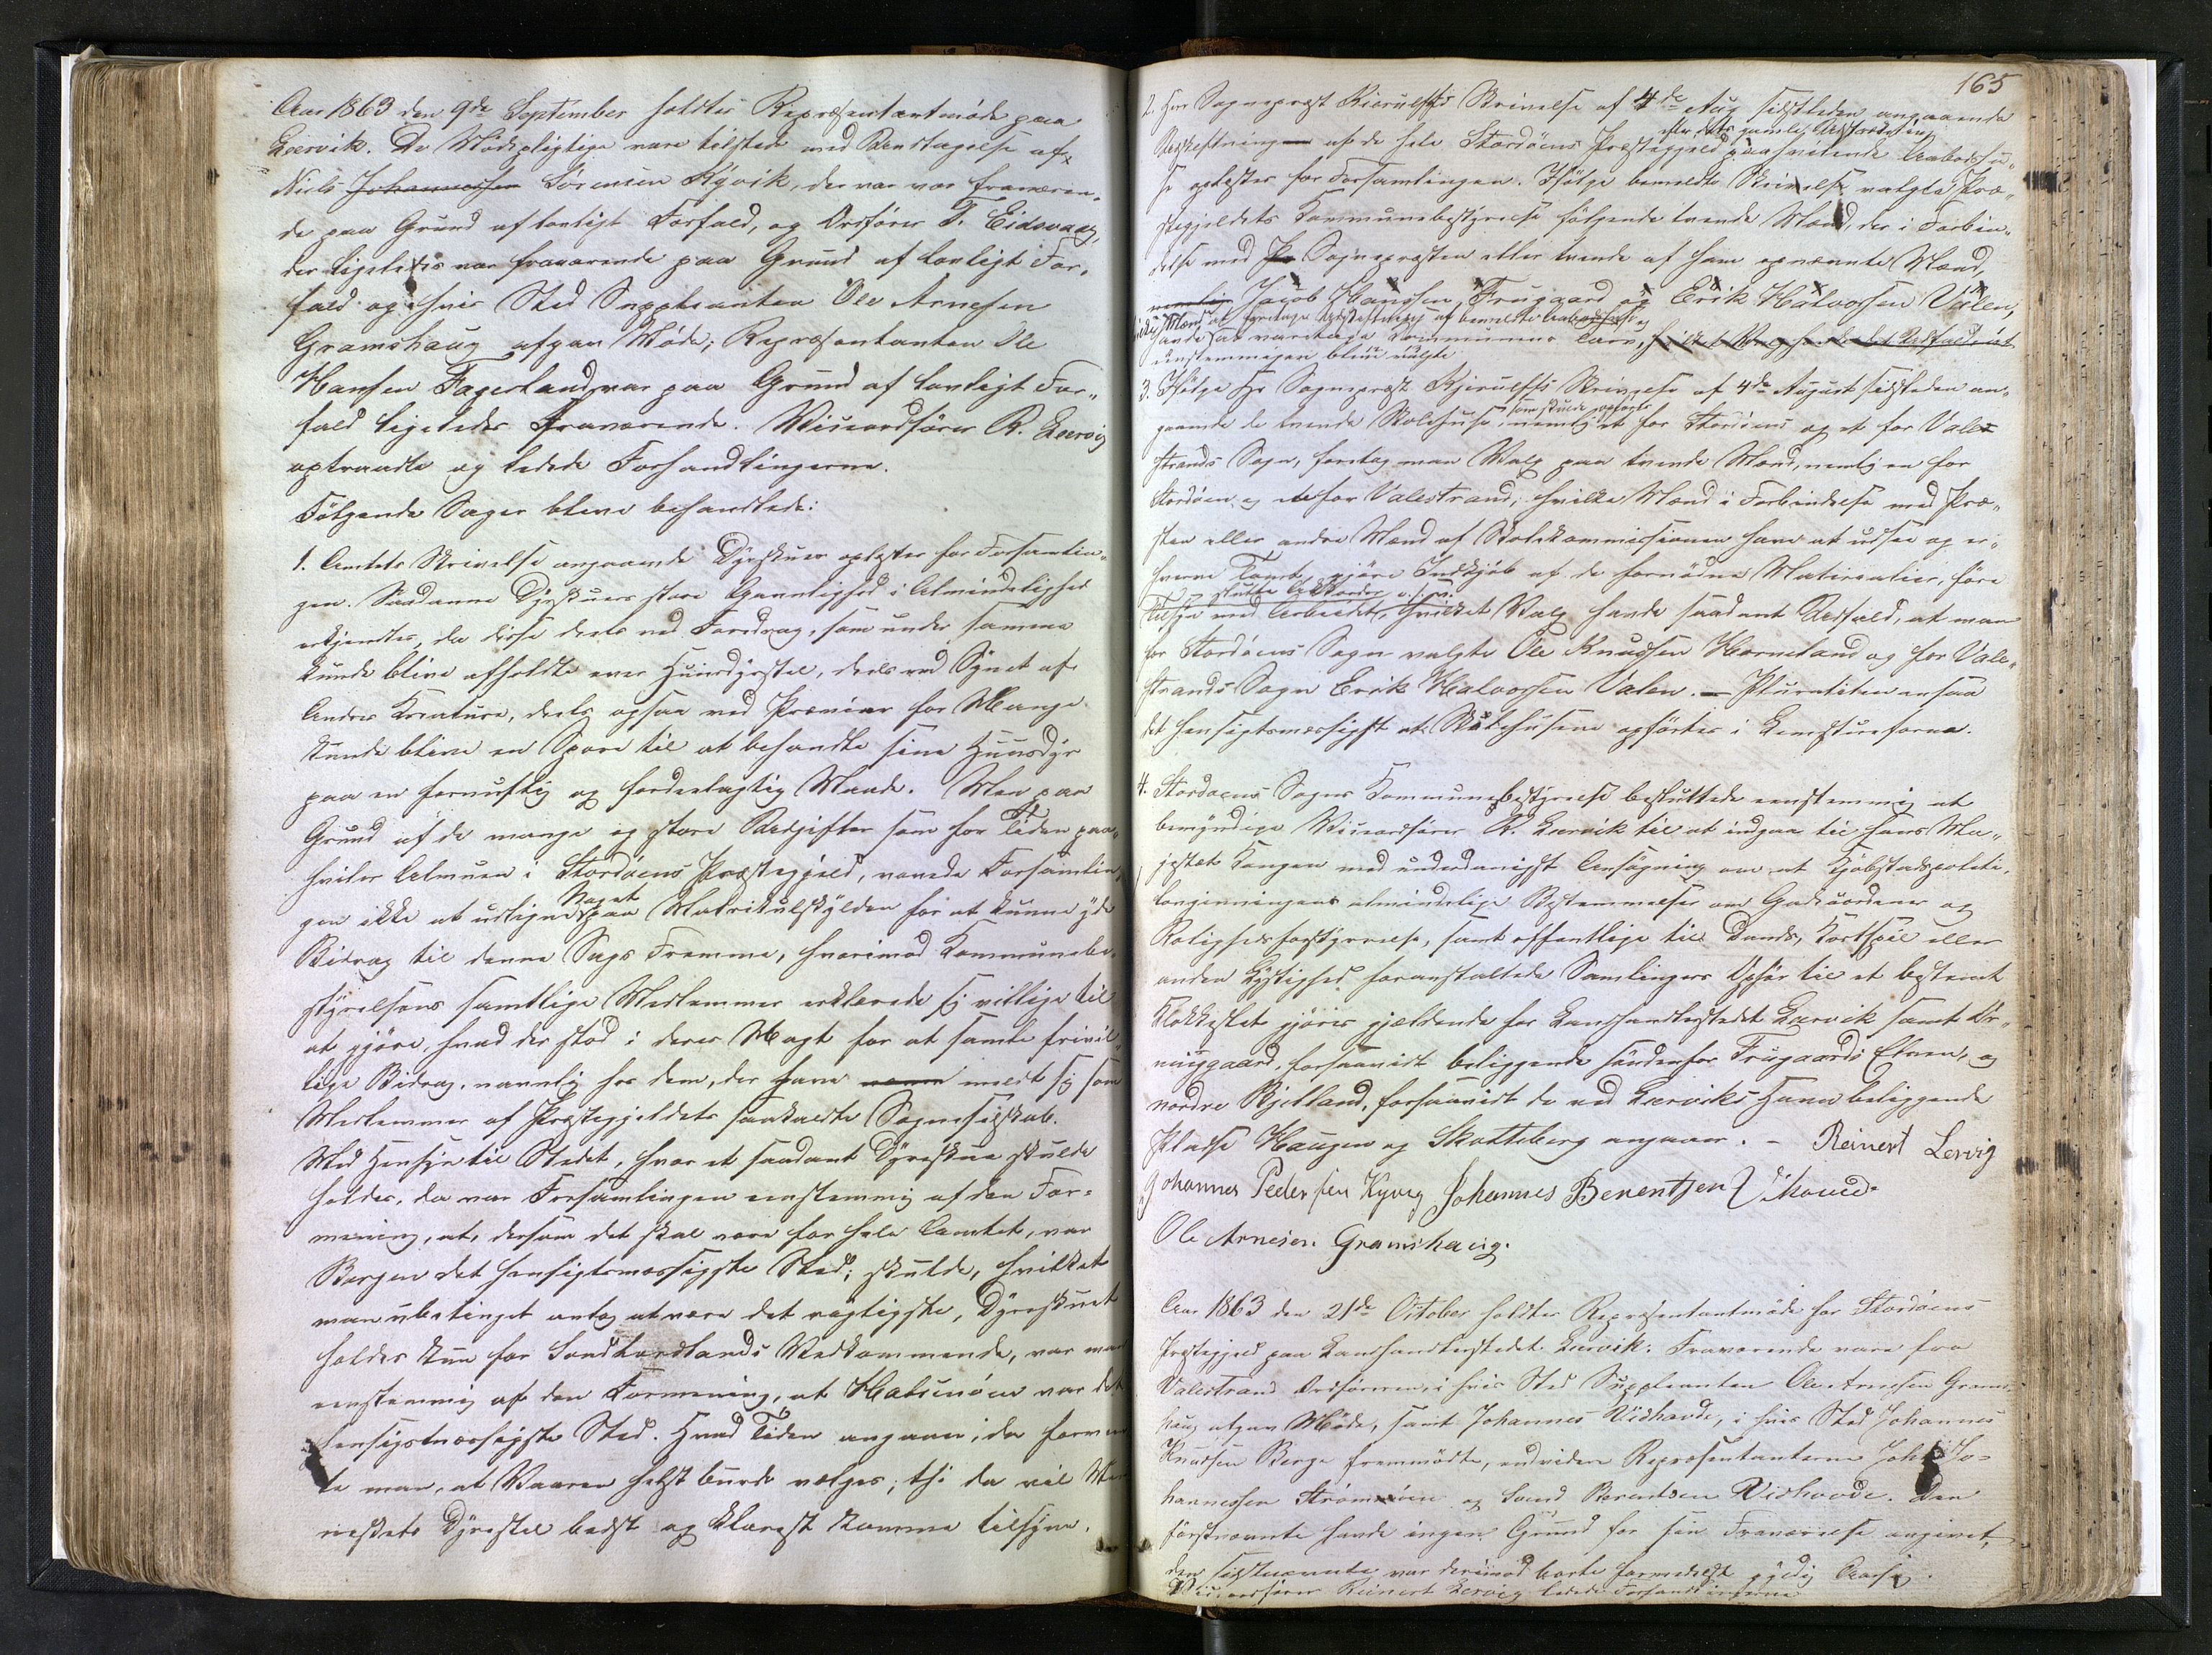 Aar 1863 den 9de September holdtes Repræsentantmöde paa
Lærvik. De Mödepligtige vare tilstede med Undtagelse af
Niels Johannessen Sörensen Kyvik, der var fraværen-
de paa Grund af lovligt Forfald, og Ordförer T. Eidsvaag,
der ligeledes var fraværende paa Grund af lovligt For-
fald og i hvis Sted Suppleanten Ole Arnesen
Gramshaug afgav Möde; Repræsentanten Ole
Hansen Fagerland var paa Grund af lovligt For-
fald ligeledes fraværende. Viceordförer R. Lærvig
optraadte og ledede Forhandlingerne.
Fölgende Sager bleve behandlede:
1. Amtets Skrivelse angaaende Dyrskuer oplæstes for Forsamlin-
gen. Saadanne Dyrskuers store Gavnlighed i Almindelighed
erkjendtes, da disse deels ved Foredrag, som under samme
kunde blive afholdte over Huusdyrstel, deels ved Synet af
Andres Kreature, deels ogsaa ved Præmier for Mange
kunde blive en Spore til at behandle sine Huusdyr
paa en fornuftig og fordeelagtig Maade. Men paa
Grund af de mange og store Udgifter som for Tiden paa-
hviler Almuen i Stordöens Præstegjeld, vovede Forsamlin-
gen ikke at udligne Noget paa Matrikulskylden for at kunne yde
Bidrag til denne Sags Fremme, hvorimod Kommunebe-
styrelsens samtlige Medlemmer erklærede sig villige til
at gjöre, hvad der stod i deres Magt for at samle frivil-
lige Bidrag, navnlig hos dem, der have meldt sig som
Medlemmer af Præstegjeldets saakaldte Sogneselskab.
Med Hensyn til Stedet, hvor et saadant Dyreskue skulde
holdes, da var Forsamlingen eenstemmig af den For-
mening, at, dersom det skal være for hele Amtet, var
Bergen det hensigtsmæssigste Sted; skulde, hvilket
man ubetinget antog at være det rigtigste, Dyreskuet
holdes kun for Söndhordlands Vedkommende, var man
eenstemmig af den Formening, at Halsnöen var det
hensigtsmæssigste Sted. Hvad Tiden angaaer, da formeen-
te man, at Vaaren helst burde vælges; thi da vil
Dyrestel bedst og klarest komme tilsyne.
165
2. Herr Sognepræst Kierulffs Skrivelse af 4de Aug sidstleden angaaende
efter dets gamle Udstrækning
af de hele Stordöens Præstegjeld paahvilende Aabodshu-
se oplæstes for Forsamlingen. Ifölge bemeldte Skrivelse valgte Præ-
stegjeldets Kommunebestyrelse fölgende tvende Mænd, der i Forbin-
delse med Sognepræsten eller tvende af ham opnævnte Mænd,
nemlig Jacob Hanssen Frugaard og Erik Halvorsen Valen,
hvilke Mænd at foretage af bemeldte Aabodshuse og
havde at varetage Kommunens Tarv,
eenstemmigen bleve valgte
3. Ifölge Hr Sognepræst Kjerulffs Skrivelse af 4de August sidstleden an-
som skulde opföres
gaaende de tvende Skolehuse, nemlig et for Stordöens og et for Vale-
strands Sogn, foretog man Valg paa tvende Mænd, nemlig en for
Stordöen og en for Valestrand, hvilke Mænd i Forbindelse med Præ-
sten eller andre Mænd af Skolekommissionen have at udsee og er-
hverve Tomt, gjöre Indkjöb af de fornödne Materialier, före
slutte Akkorder o.s.v.
Tilsyn med Arbeidet, hvilket Valg havde saadant Udfald, at man
for Stordöens Sogn valgte Ole Knudsen Horneland og for Vale-
strands Sogn Erik Halvorsen Valen. – Pluraliteten ansaa
det hensigtsmæssigst at Skolehusene opförtes i
4. Stordöens Sogns Kommunebestyrelse besluttede eenstemmig at
bemyndige Viceordförer R. Lærvik til at indgaa til Hans Ma-
jestæt Kongen med underdanigst Ansögning om at Kjöbstadspoliti-
lovgivningens almindelige Bestemmelser om Gadeuordener og
Rolighedsforstyrrelse, samt offentlige til Dands, Kortspil eller
anden Lystighed foranstaltede Samlingers Ophör til et bestemt
Klokkeslet gjöres gjældende for Landhandlerstedet Lærvik samt
forsaavidt beliggende söndenfor Frugaards Elven, og
nordre Bjelland, forsaavidt de ved Lærviks Havn beliggende
Pladse Haugen og Skatteberg angaaer. – Reinert Lervig
Johannes Pedersen Kyvig Johannes Berentsen
Ole Arnesen Gramshaug.
Aar 1863 den 21de October holdtes Repræsentantmöde for Stordöens
Præstegjeld paa Landhandlerstedet Lærvik. Fraværende vare fra
Valestrand Ordföreren, i hvis Sted Suppleanten Ole Arnesen Grams-
haug afgav Möde, samt Johannes Vidhovde, i hvis Sted Johannes
Knudsen Berge fremmödte, endvidere Repræsentanterne Johs Jo-
hannessen Strömsöen og Svend Berentsen Vidhovde. Den
förstnævnte havde ingen Grund for sin Fraværelse angivet,
den sidstnævnte var derimod borte formedelst gyldig Aarsag.
Viceordförer Reinert Lervig ledede Forhandlingerne.